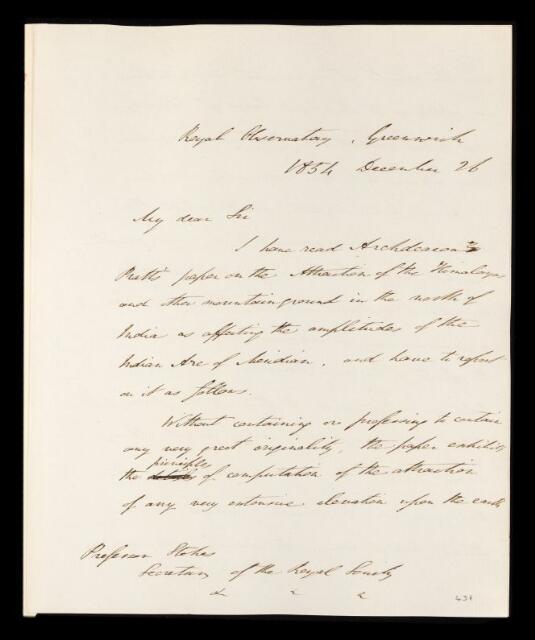 Royal Observatory, Greenwich
1854 December 26
My dear Sir
I have read Archdeacon
Pratt's paper on the Attraction of the Himalayas
and other mountain ground in the north of
India as affecting the amplitudes of the
Indian Arc of Meridian, and have to report
on it as follows.
Without containing or professing to contain
any very great originality, the paper exhibits
principles
the of computation of the attraction
of any very extensive elevation upon the earth
Professor Stokes
Secretary of the Royal Society
431